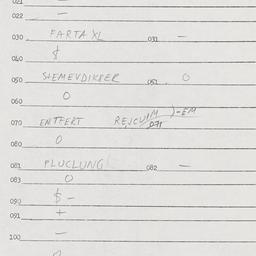 021
022 –
030 FARTA XL 031 –
040 $
050 SIEMEVDIKBER 051 0
060 0
070 ENTFERT 071
080 0
081 PLUCLUNG 082 –
083 0
090 $ –
091 +
100 –